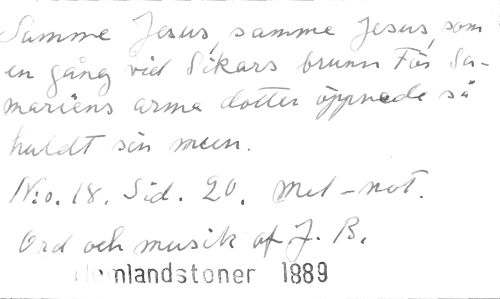 Samme Jesus, samme Jesus, som
en gång vid Sikars brunn För Sa-
mariens arma dotter öppnade så
huldt sin mun.
N:o. 18. Sid. 20. Mel-not.
Ord och musik af J. B.
Hemlandstoner 1889